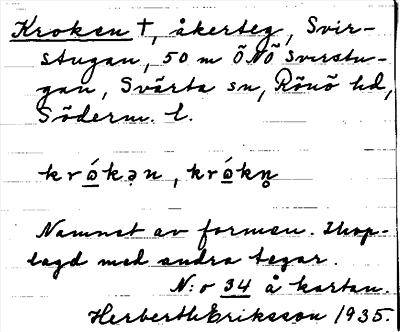 Kroken †, åkerteg, Svir-
stugan, 50 m ÖNÖ Svirstu-
gan, Svärta sn, Rönö hd,
Söderm. l.
krǫ́kən, krǫ́kn̥
Namnet av formen. Ihop-
lagd med andra tegar.
N:o 34 å kartan.
Herberth Eriksson 1935.